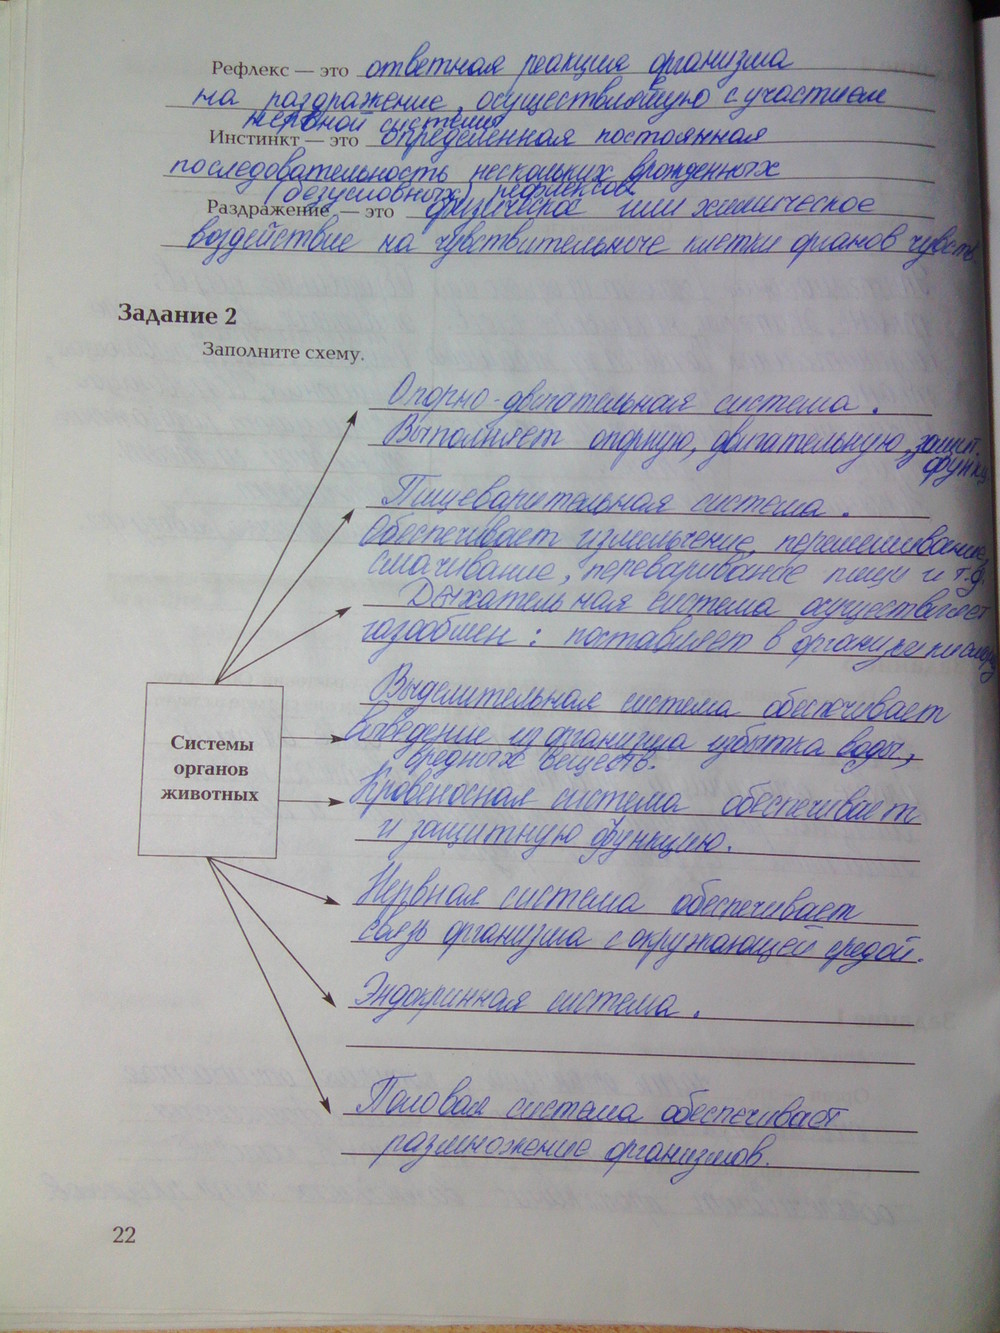 Рефлекс — это ответная реакция организма
на раздражение, осуществляемую с участием
нервной системы
Инстинкт — это определенная постоянная
последовательность нескольких врожденных
(безусловных) рефлексов
Раздражение — это физическое или химическое
воздействие на чувствительные клетки органов чувств.
Задание 2
Заполните схему.
Опорно-двигательная система.
Выполняет опорную, двигательную, защит.
функц
Пищеварительная система.
Обеспечивает измельчение, перемешивание,
смачивание, переваривание пищи и т.д.
Дыхательная система осуществляет
газообмен: поставляет в организм кислород
Выделительная система обеспечивает
выведение из организма избытка воды,
вредных веществ.
Системы
органов
животных
Кровеносная система обеспечивает
и защитную функцию.
Нервная система обеспечивает
связь организма с окружающей средой.
Эндокринная система.
Половая система обеспечивает
размножение организмов.
22